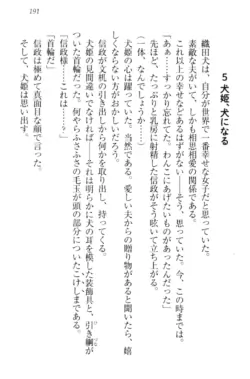 5 犬姫、犬になる
織田犬は、自分が世界で一番幸せな女子だと思っていた。
素敵な夫がいて、しかも相思相愛の関係である。
これ以上の幸せなどあるはずがない――そう、思っていた。今、
「あ、わんこにあげたいものがあったんだった」
先ほど、たっぷりと乳房に射精した信政が、そう呟いて立ち上がる。
（一体、なんでしょうか……）
犬姫の心は躍っていた。愛しい夫からの贈り物があると聞いたら、嬉
信政が文机の引き出しから何かを取り出し、持ってくる。
犬姫の見間違いでなければ、それは明らかに犬の耳を模した装飾具と、引き綱が
ついた首輪だ。何やらふさふさの毛玉が頭の部分についたこけしまである。
「信政様……これは……？」
「首輪だ」
信政は極めて真面目な顔で言った。
犬姫は思い出す。
191